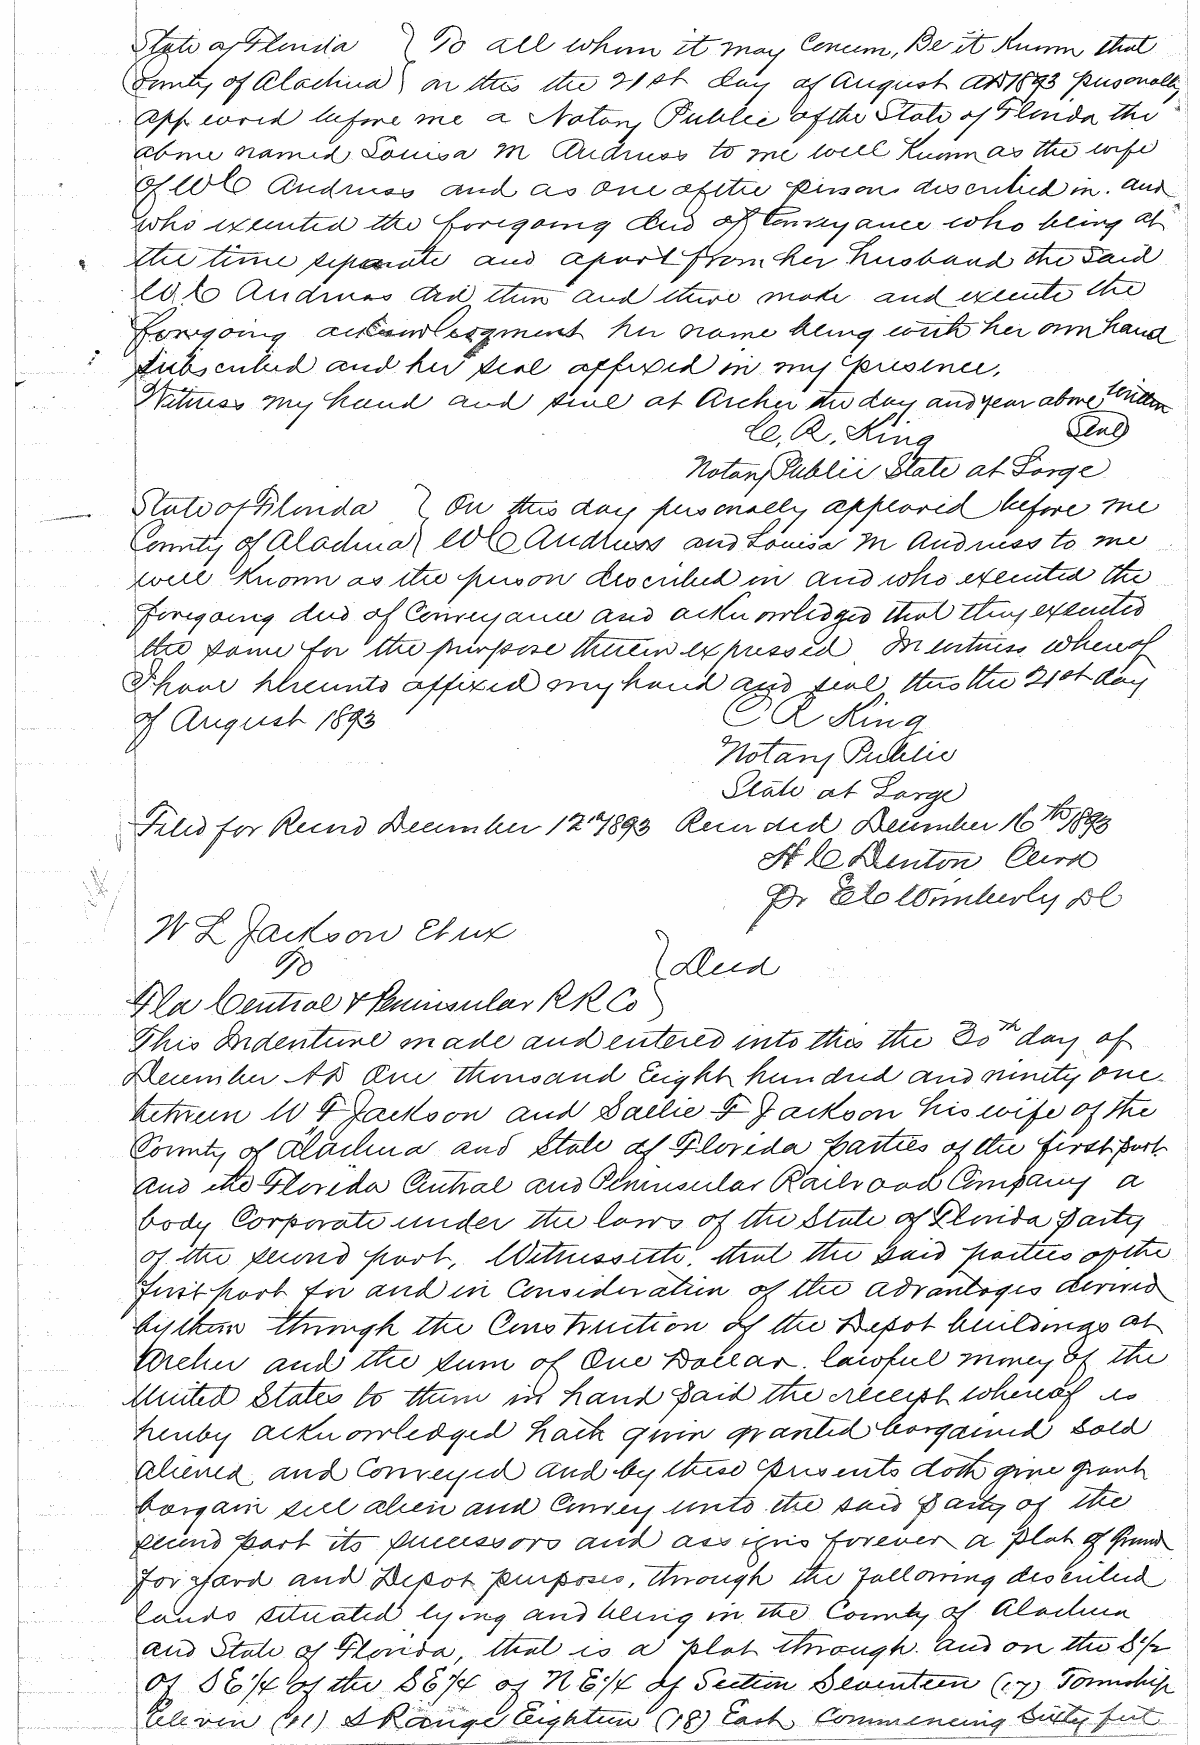 State of Florida } To all whom it may Concern, Be it Known that
County of Alachua } on this the 21st day of August AD 1893 personally
appeared before me a Notary Public of the State of Florida the
above named Louisa M Andruss to me well Known as the wife
of W C Andruss and as one of the persons described in. and
who executed the foregoing deed of Conveyance who being at
the time separate and apart from her husband the Said
W. C Andruss did then and there make and execute the
foregoing acknowledgment her name being with her own hand
subscribed and her seal affixed in my presence,
Witness my hand and seal at Archer the day and year above written
C. R. King Seal
Notary Public State at Large
State of Florida } On this day personally appeared before me
County of Alachua } W C Andruss and Louisa M Andruss to me
well Known as the person described in and who executed the
foregoing deed of Conveyance and acknowledged that they executed
the same for the purpose therein expressed In witness whereof
I have hereunto affixed my hand and seal this the 21st day
of August 1893 C R King
Notary Public
State at Large
Filed for Record December 12th 1893 Recorded December 16th 1893
H C Denton Clerk
Pr E C Wimberly DC
W L Jackson Et ux
To } Deed
Fla Central & Peninsular R R Co
This Indenture made and entered into this the 30th day of
December AD One thousand Eight hundred and ninety one
between W F Jackson and Sallie F Jackson his wife of the
County of Alachua and State of Florida parties of the first part
and the Florida Central and Peninsular Railroad Company a
body Corporate under the laws of the State of Florida party
of the second part, Witnesseth, that the said parties of the
first part for and in Consideration of the advantages derived
by them through the Construction of the Depot buildings at
Archer and the sum of One Dollar. lawful money of the
United States to them in hand paid the receipt whereof is
hereby acknowledged hath given granted bargained sold
aliened and Conveyed and by these presents doth give grant
bargain sell alien and Convey unto the said party of the
second part its successors and assigns forever a plat of Ground
for yard and Depot purposes, through the following described
lands situated lying and being in the County of Alachua
and State of Florida, that is a plat through. and on the S 1/2
of S E 1/4 of the S E 1/4 of N E 1/4 of Section Seventeen (17) Township
Eleven (11) S Range Eighteen (18) East Commencing Sixty feet